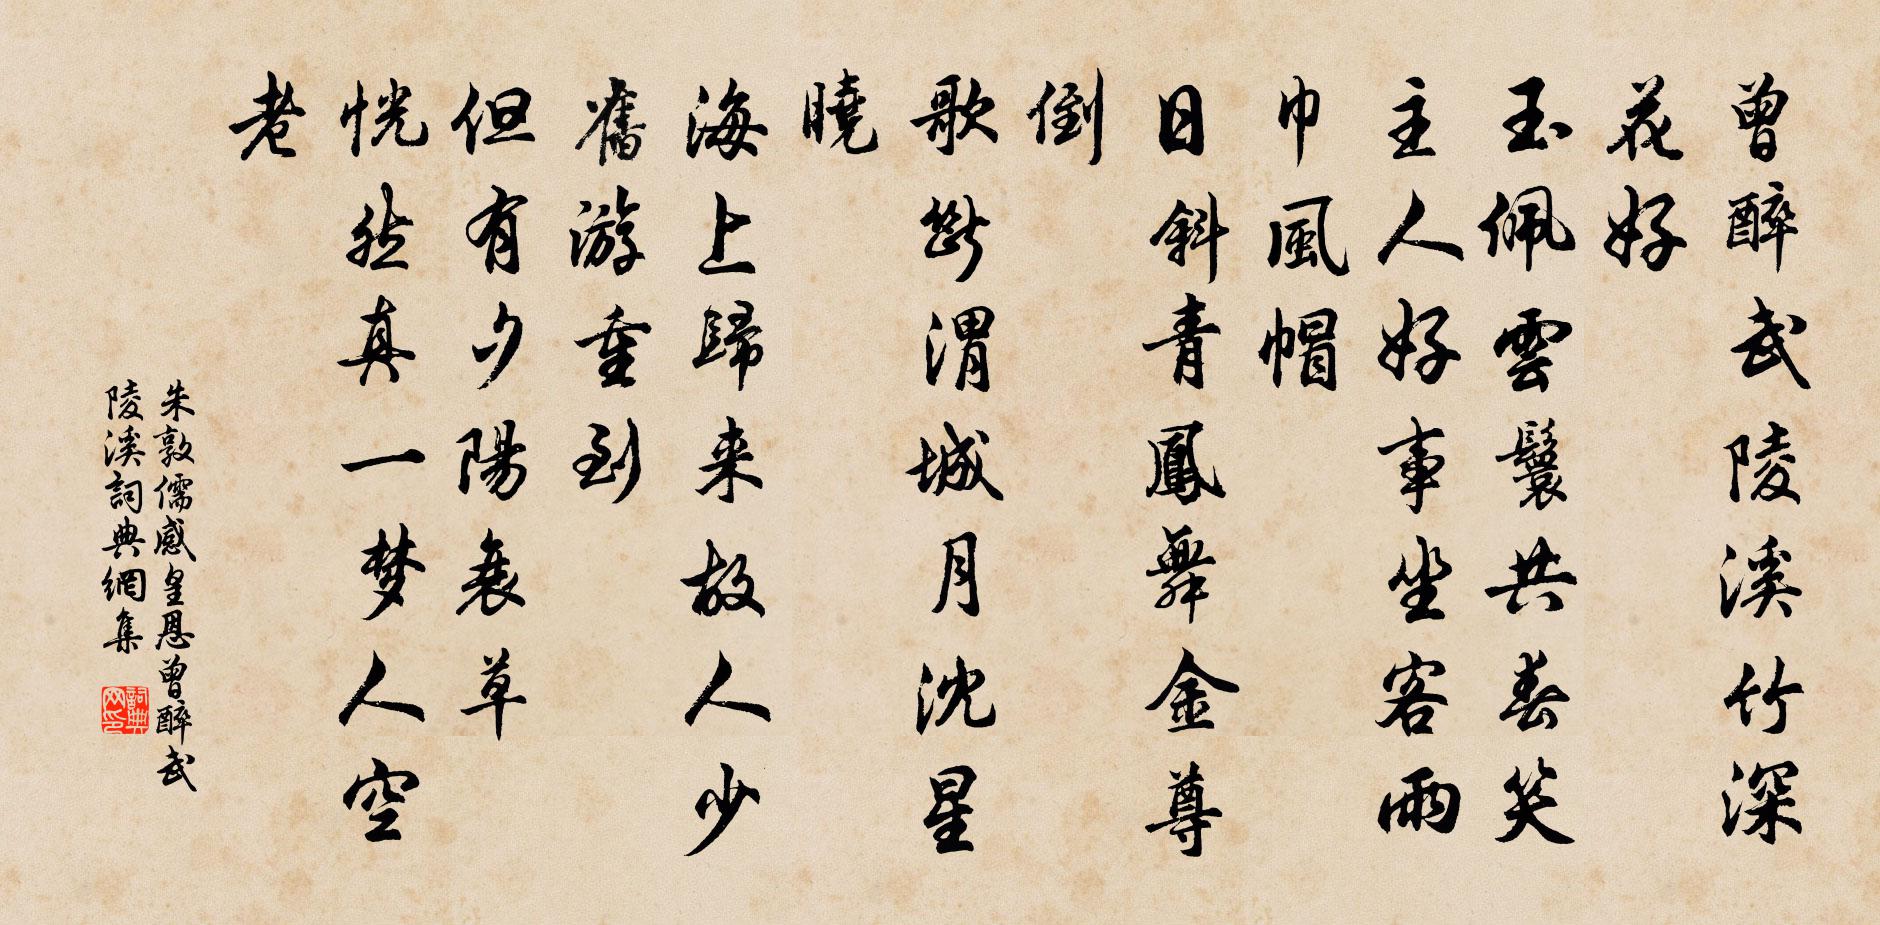 曾醉武陵溪竹深
花好
玉佩雲鬟共春笑
主人好事坐客雨
巾風帽
日斜青鳳舞金尊
倒
歌断渭城月沈星
曉
海上歸来故人少
舊游重到
但有夕陽衰草
恍然真一梦人空
老
朱敦儒感皇恩曾醉武
陵溪詞典網集
詞典网印